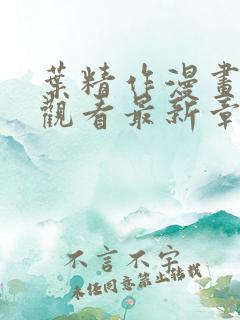 葉精作漫畫
觀看最新章
不言不字
未經同意禁止轉載